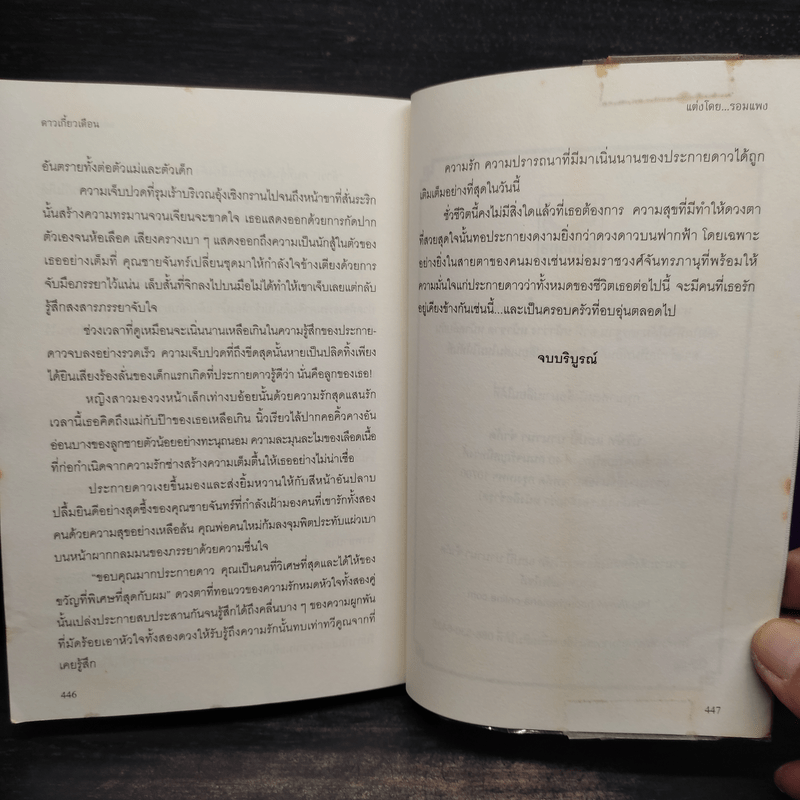 ดาวเกี้ยวเดือน
อันตรายทั้งต่อตัวแม่และตัวเด็ก
ความเจ็บปวดที่รุมเร้าบริเวณอุ้งเชิงกรานไปจนถึงหน้าขาที่สั่นระริก
นั้นสร้างความทรมานจวนเจียนจะขาดใจ เธอแสดงออกด้วยการกัดปาก
ตัวเองจนห้อเลือด เสียงครางเบา ๆ แสดงออกถึงความเป็นนักสู้ในตัวของ
เธออย่างเต็มที่ คุณชายจันทร์เปลี่ยนชุดมาให้กำลังใจข้างเตียงด้วยการ
จับมือภรรยาไว้แน่น เล็บสั้นที่จิกลงไปบนมือไม่ได้ทำให้เขาเจ็บเลยแต่กลับ
รู้สึกสงสารภรรยาจับใจ
ช่วงเวลาที่ดูเหมือนจะเนิ่นนานเหลือเกินในความรู้สึกของประกาย-
ดาวจบลงอย่างรวดเร็ว ความเจ็บปวดที่ถึงขีดสุดนั้นหายเป็นปลิดทิ้งเพียง
ได้ยินเสียงร้องลั่นของเด็กแรกเกิดที่ประกายดาวรู้ดีว่า นั่นคือลูกของเธอ!
หญิงสาวมองวงหน้าเล็กเท่างบอ้อยนั้นด้วยความรักสุดแสนรัก
เวลานี้เธอคิดถึงแม่กับป๊าของเธอเหลือเกิน นิ้วเรียวไล้ปากคอคิ้วคางอัน
อ่อนบางของลูกชายตัวน้อยอย่างทะนุถนอม ความละมุนละไมของเลือดเนื้อ
ที่ก่อกำเนิดจากความรักช่างสร้างความเต็มตื้นให้เธออย่างไม่น่าเชื่อ
ประกายดาวเงยขึ้นมองและส่งยิ้มหวานให้กับสีหน้าอันปลาบ
ปลื้มยินดีอย่างสุดซึ้งของคุณชายจันทร์ที่กำลังเฝ้ามองคนที่เขารักทั้งสอง
คนด้วยความสุขอย่างเหลือล้น คุณพ่อคนใหม่ก้มลงจุมพิตประทับแผ่วเบา
บนหน้าผากกลมมนของภรรยาด้วยความชื่นใจ
"ขอบคุณมากประกายดาว คุณเป็นคนที่วิเศษที่สุดและได้ให้ของ
ขวัญที่พิเศษที่สุดกับผม" ดวงตาที่ทอแววของความรักหมดหัวใจทั้งสองคู่
นั้นเปล่งประกายสบประสานกันจนรู้สึกได้ถึงคลื่นบาง ๆ ของความผูกพัน
ที่มัดร้อยเอาหัวใจทั้งสองดวงให้รับรู้ถึงความรักนั้นทบเท่าทวีคูณจากที่
เคยรู้สึก
446
แต่งโดย...รอมแพง
ความรัก ความปรารถนาที่มีมาเนิ่นนานของประกายดาวได้ถูก
เติมเต็มอย่างที่สุดในวันนี้
ชั่วชีวิตนี้คงไม่มีสิ่งใดแล้วที่เธอต้องการ ความสุขที่มีทำให้ดวงตา
ที่สวยสุดใจนั้นทอประกายงดงามยิ่งกว่าดวงดาวบนฟากฟ้า โดยเฉพาะ
อย่างยิ่งในสายตาของคนมองเช่นหม่อมราชวงศ์จันทรภานุที่พร้อมให้
ความมั่นใจแก่ประกายดาวว่าทั้งหมดของชีวิตเธอต่อไปนี้ จะมีคนที่เธอรัก
อยู่เคียงข้างกันเช่นนี้...และเป็นครอบครัวที่อบอุ่นตลอดไป
จบบริบูรณ์
447